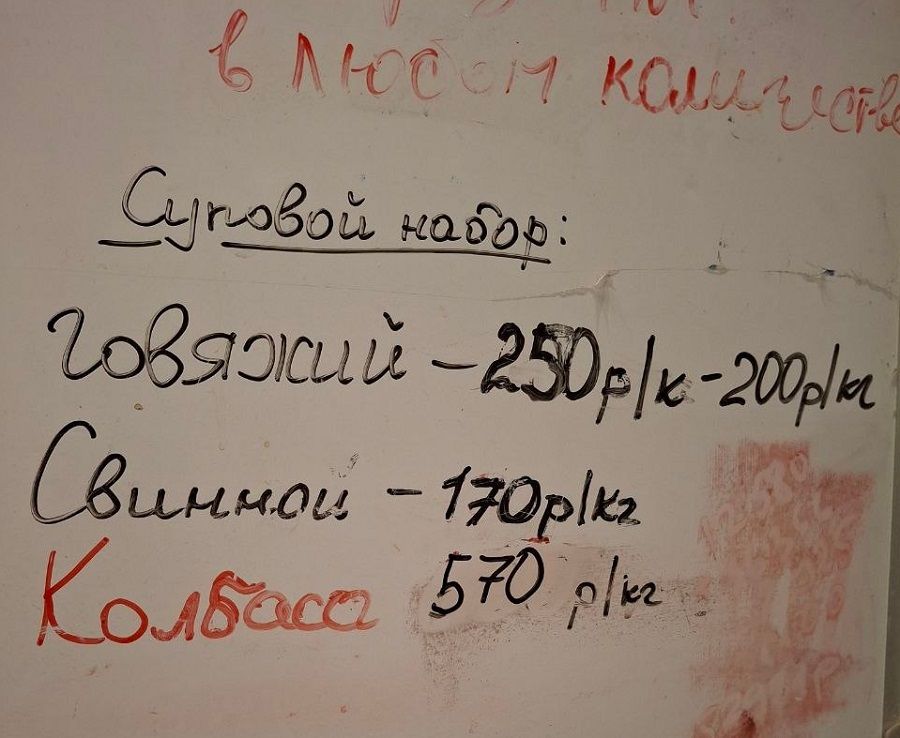 в любом количестве
Суповой набор:
Говяжий - 250р/к - 200р/кг
Свинной - 170р/кг
Колбаса 570 р/кг